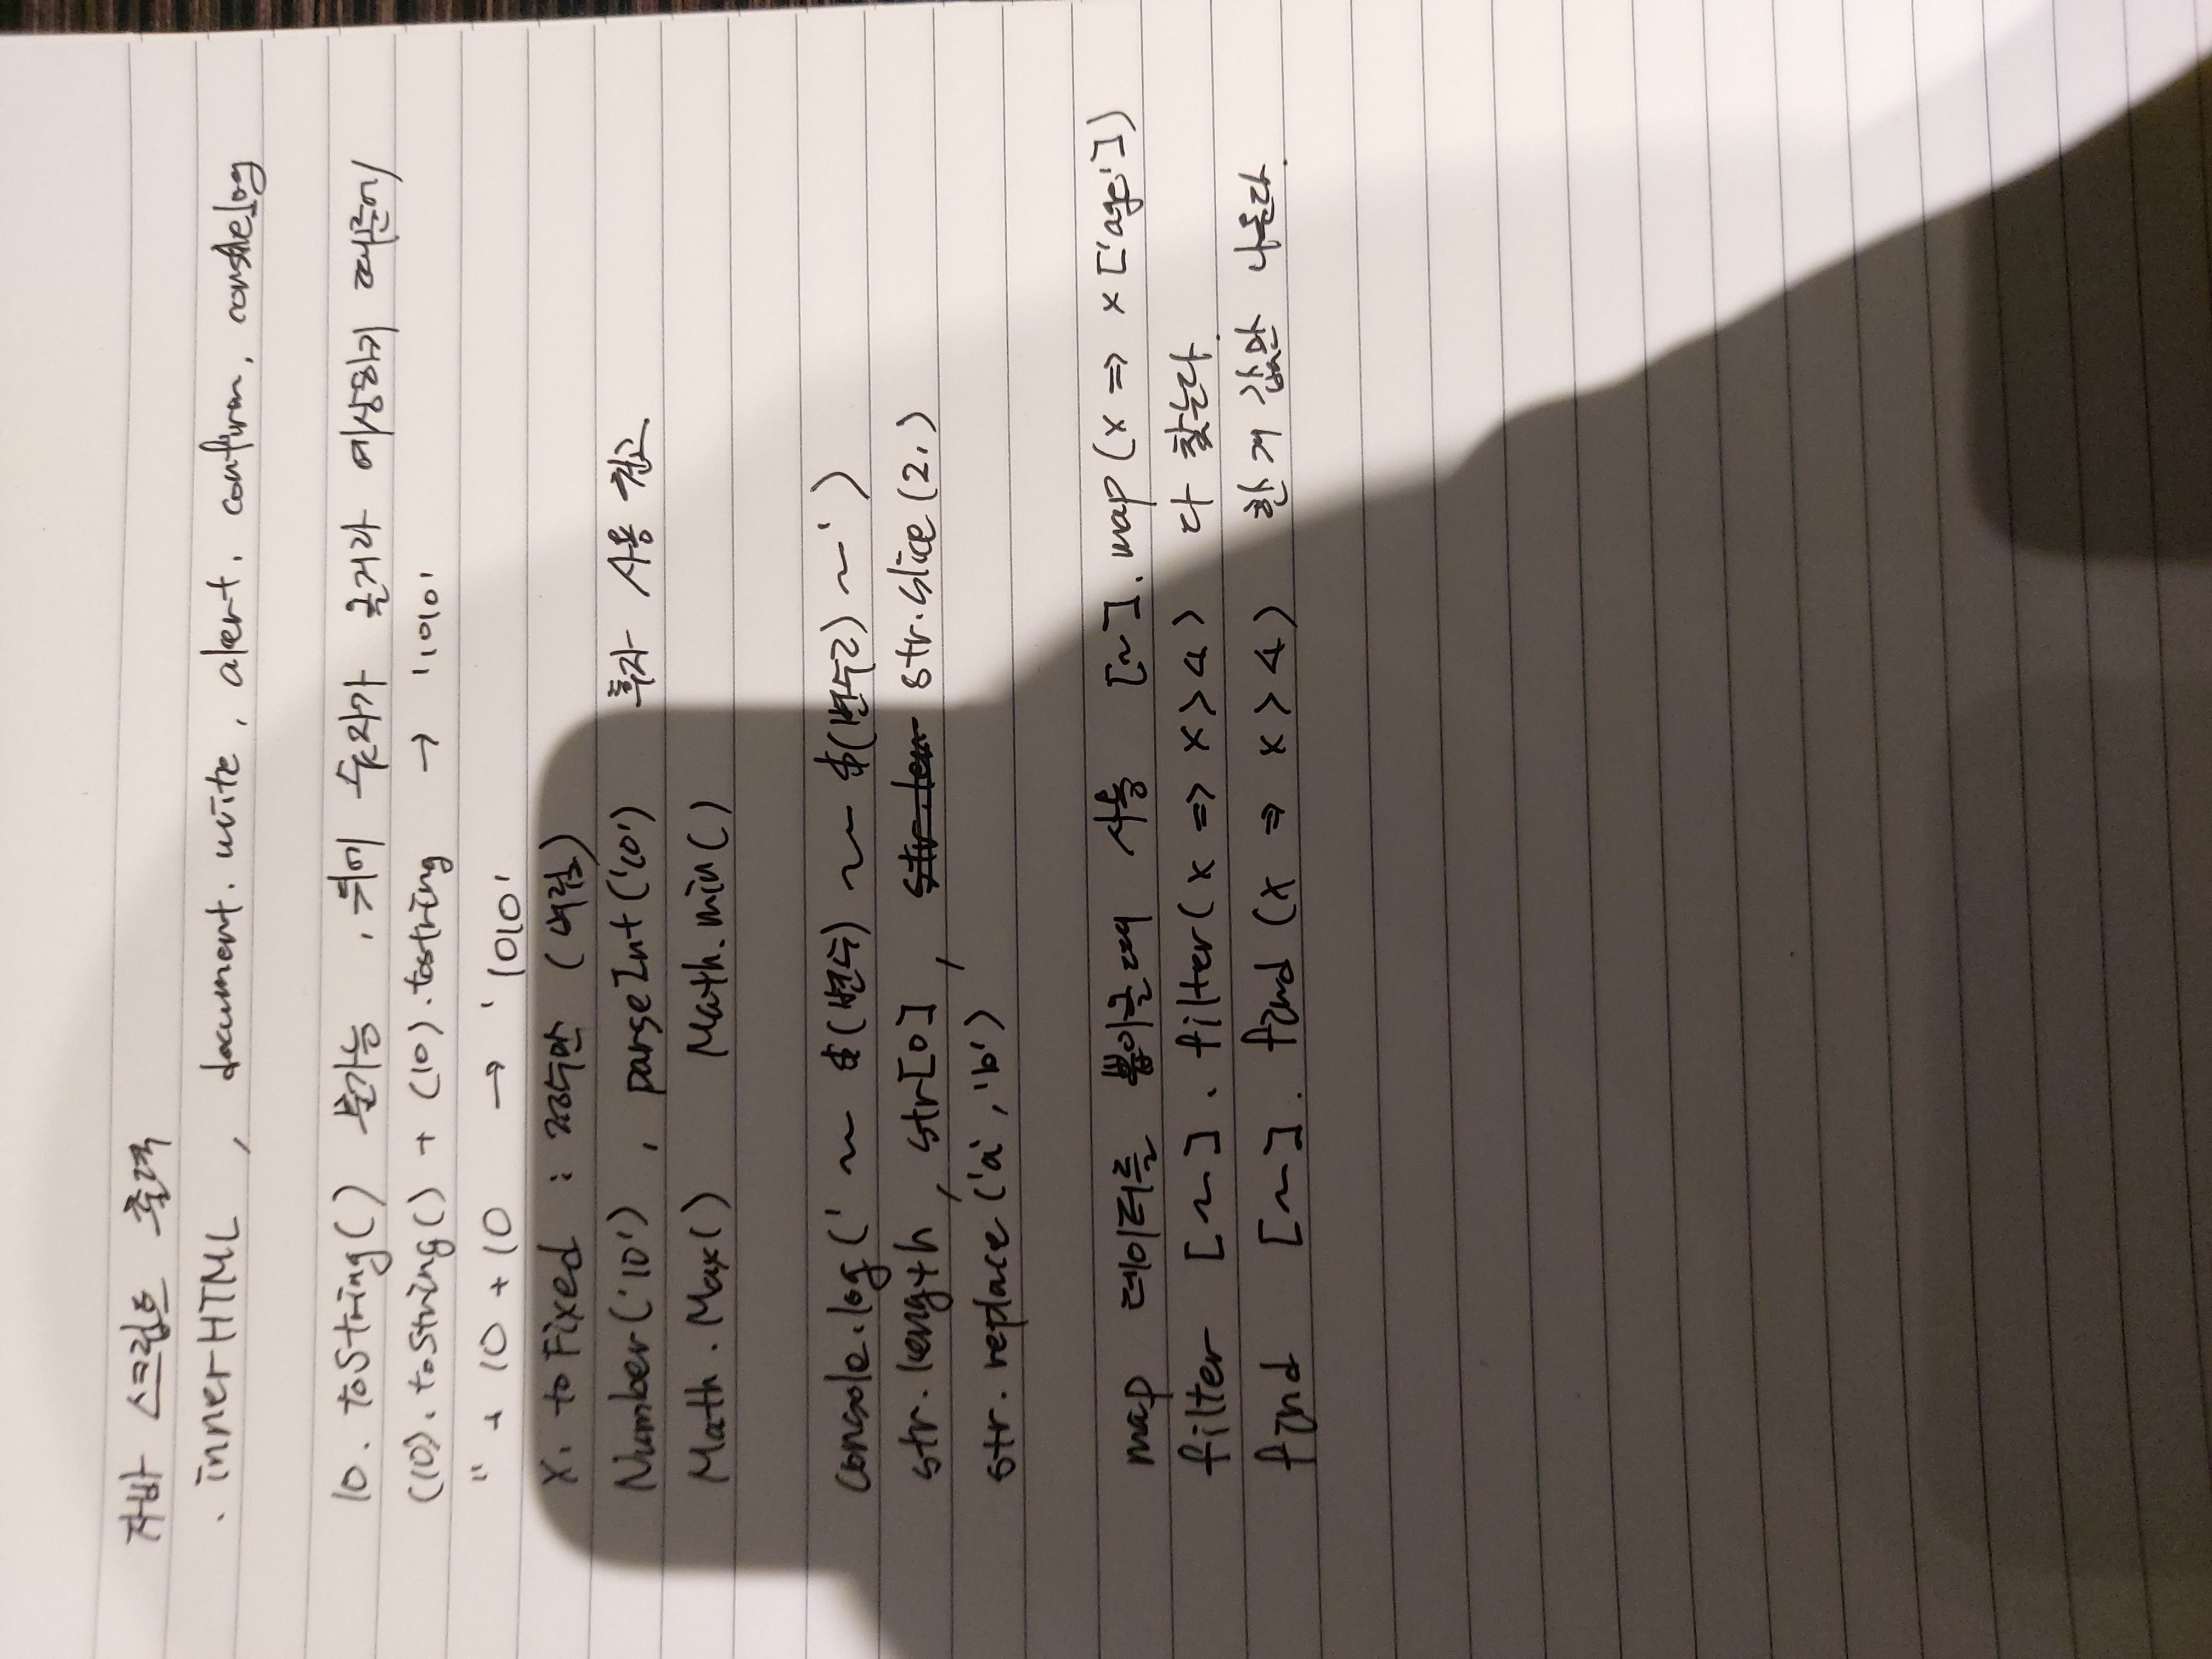 자바 스크립트 출력
. innerHTML , document. write, alert. confirm, console.log
10. toString() 불가능 , 뒤에 숫자가 올거라 예상하기 때문에
(10). toString() + (10).tostring → '1010'
'' + 10 + 10 → '1010'
X. toFixed : 정수만 (버림)
Number('10') , parseInt('10') 후자 사용 권고
Math . Max() Math. min()
console.log(' ~ $(변수) ~ $(변수2) ~ ')
str.length, str[0], str.slice (2.)
str. replace ('a', 'b')
map 데이터를 뽑아올때 사용 [~]. map (x => x ['age'])
filter [~]. filter(x => x>4) 다 찾는다.
find [~]. find (x => x>4) 한 개 값만 나온다.